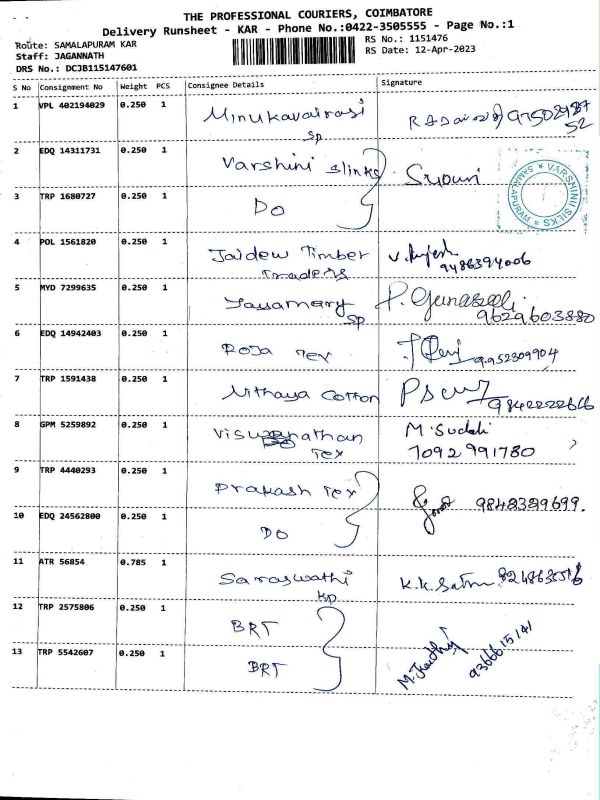 THE PROFESSIONAL COURIERS, COIMBATORE
Delivery Runsheet - KAR - Phone No.:0422-3505555 - Page No.:1
Route: SAMALAPURAM KAR
RS No.: 1151476
Staff: JAGANNATH
RS Date: 12-Apr-2023
DRS No.: DCJB115147601
S No Consignment No Weight PCS Consignee Details Signature
1 VPL 402194029 0.250 1
SP
52
2 EDQ 14311731 0.250 1 Varshini
VARSHINI SILKS * SAMALAPURAM *
3 TRP 1680727 0.250 1 DO
4 POL 1561820 0.250 1 Jaidew Timber
Traders 9486394006
5 MYD 7299635 0.250 1 Jayamary
SP 9629603880
6 EDQ 14942403 0.250 1 Roja Tex 9952309904
7 TRP 1591438 0.250 1 Nithaya Cotton
8 GPM 5259892 0.250 1 M. Sudali
Tex 7092 991780
9 TRP 4440293 0.250 1 Prakash Tex 9848389699.
10 EDQ 24562800 0.250 1 DO
11 ATR 56854 0.785 1 Saraswathi K.K.
KP
12 TRP 2575806 0.250 1 BRT
13 TRP 5542607 0.250 1 BRT 9366615141